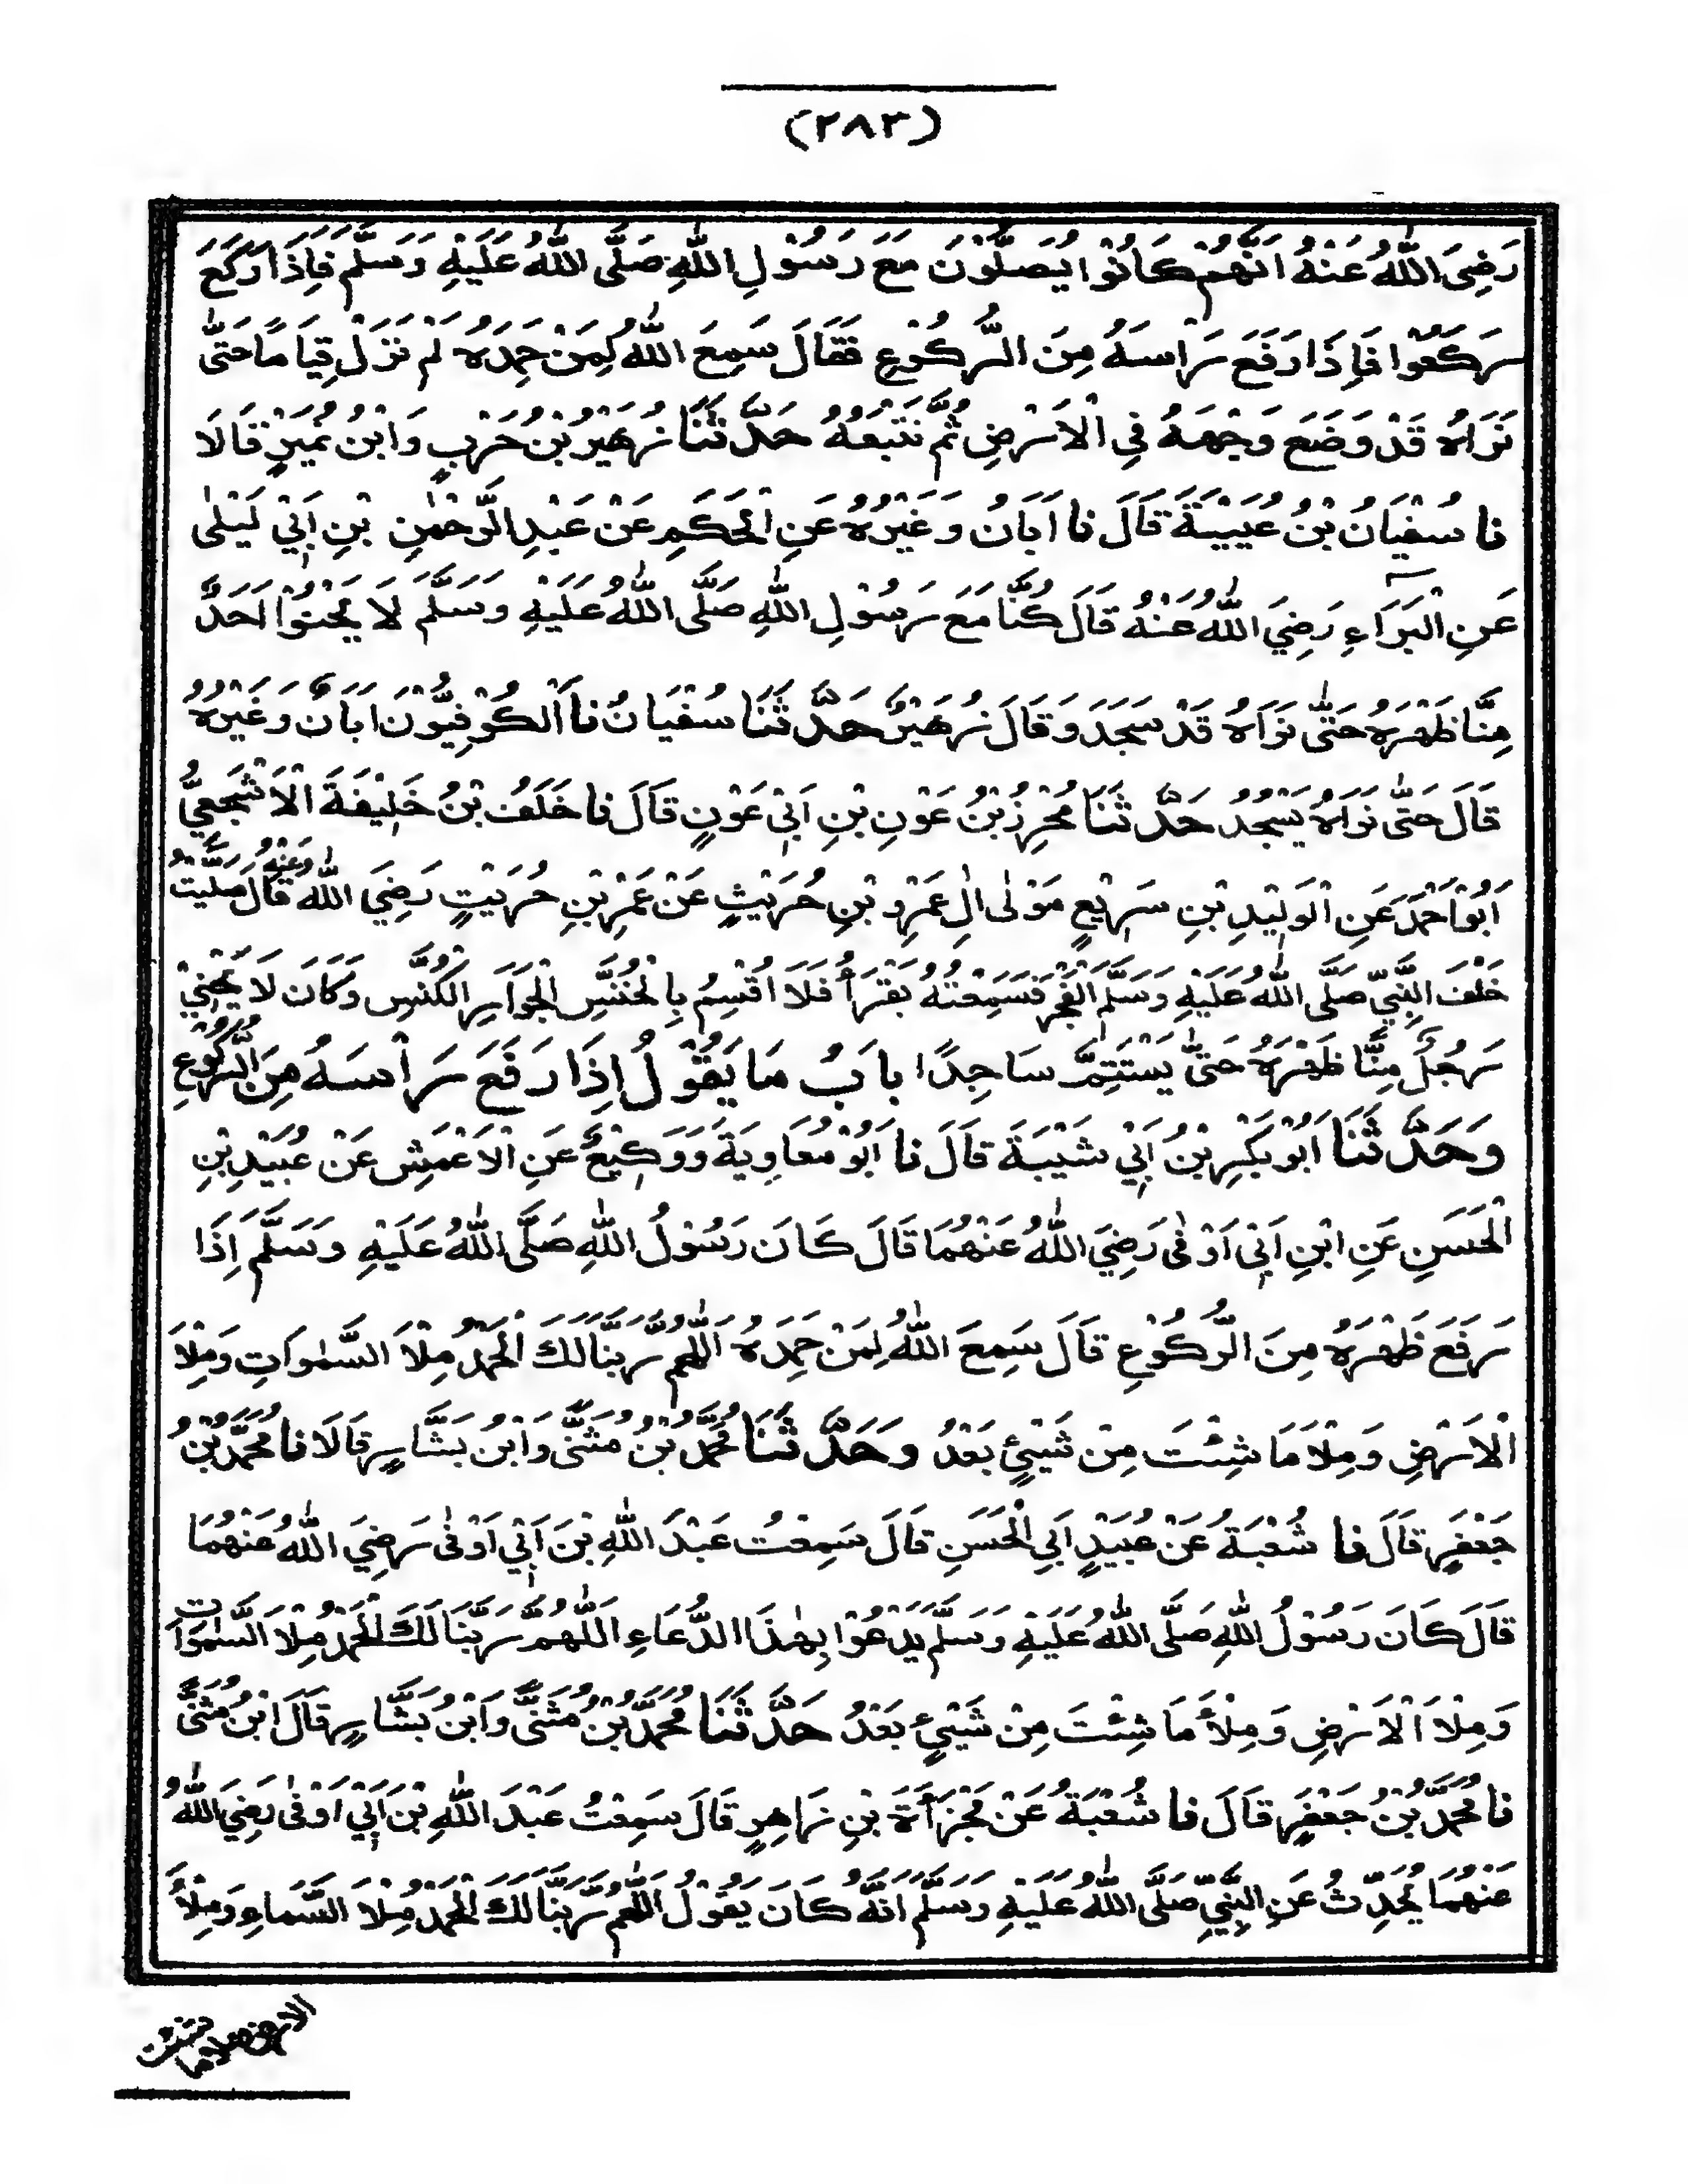 (٢٨٣)
رَضِيَ اللّٰهُ عَنْهُ اَنَّهُمْ كَانُوْا يُصَلُّوْنَ مَعَ رَسُوْلِ اللّٰهِ صَلَّى اللّٰهُ عَلَيْهِ وَسَلَّمَ فَاِذَا رَكَعَ
رَكَعُوْا فَاِذَا رَفَعَ رَاْسَهُ مِنَ الرُّكُوْعِ فَقَالَ سَمِعَ اللّٰهُ لِمَنْ حَمِدَهُ لَمْ نَزَلْ قِيَامًا حَتّٰى
نَرَاهُ قَدْ وَضَعَ وَجْهَهُ فِي الْاَرْضِ ثُمَّ نَتَّبِعُهُ حَدَّثَنَا زُهَيْرُ بْنُ حَرْبٍ وَابْنُ نُمَيْرٍ قَالَا
نا سُفْيَانُ بْنُ عُيَيْنَةَ قَالَ نا اَبَانُ وَغَيْرُهُ عَنِ الْحَكَمِ عَنْ عَبْدِ الرَّحْمٰنِ بْنِ اَبِيْ لَيْلٰى
عَنِ الْبَرَآءِ رَضِيَ اللّٰهُ عَنْهُ قَالَ كُنَّا مَعَ رَسُوْلِ اللّٰهِ صَلَّى اللّٰهُ عَلَيْهِ وَسَلَّمَ لَا يَحْنُوْا اَحَدٌ
مِنَّا ظَهْرَهُ حَتّٰى نَرَاهُ قَدْ سَجَدَ وَقَالَ زُهَيْرٌ حَدَّثَنَا سُفْيَانُ نا الْكُوْفِيُّوْنَ اَبَانٌ وَغَيْرُهُ
قَالَ حَتّٰى نَرَاهُ يَسْجُدُ حَدَّثَنَا مُحْرِزُ بْنُ عَوْنِ بْنِ اَبِيْ عَوْنٍ قَالَ نا خَلَفُ بْنُ خَلِيْفَةَ الْاَشْجَعِيُّ
اَبُوْ اَحْمَدَ عَنِ الْوَلِيْدِ بْنِ سَرِيْعٍ مَوْلٰى اٰلِ عَمْرِو بْنِ حُرَيْثٍ عَنْ عَمْرِ بْنِ حُرَيْثٍ رَضِيَ اللّٰهُ عَنْهُ قَالَ صَلَّيْتُ
خَلْفَ النَّبِيِّ صَلَّى اللّٰهُ عَلَيْهِ وَسَلَّمَ الْفَجْرَ فَسَمِعْتُهُ يَقْرَأُ فَلَا اُقْسِمُ بِالْخُنَّسِ الْجَوَارِ الْكُنَّسِ وَكَانَ لَا يَحْنِيْ
رَجُلٌ مِنَّا ظَهْرَهُ حَتّٰى يَسْتَتِمَّ سَاجِدًا بَابُ مَا يَقُوْلُ اِذَا رَفَعَ رَاْسَهُ مِنَ الرُّكُوْعِ
وَحَدَّثَنَا اَبُوْ بَكْرِ بْنُ اَبِيْ شَيْبَةَ قَالَ نا اَبُوْ مُعَاوِيَةَ وَوَكِيْعٌ عَنِ الْاَعْمَشِ عَنْ عُبَيْدِ بْنِ
الْحَسَنِ عَنِ ابْنِ اَبِيْ اَوْفٰى رَضِيَ اللّٰهُ عَنْهُمَا قَالَ كَانَ رَسُوْلُ اللّٰهِ صَلَّى اللّٰهُ عَلَيْهِ وَسَلَّمَ اِذَا
رَفَعَ ظَهْرَهُ مِنَ الرُّكُوْعِ قَالَ سَمِعَ اللّٰهُ لِمَنْ حَمِدَهُ اَللّٰهُمَّ رَبَّنَا لَكَ الْحَمْدُ مِلْاَ السَّمٰوَاتِ وَمِلْاَ
الْاَرْضِ وَمِلْاَ مَا شِئْتَ مِنْ شَيْئٍ بَعْدُ وَحَدَّثَنَا مُحَمَّدُ بْنُ مُثَنّٰى وَابْنُ بَشَّارٍ قَالَا نا مُحَمَّدُ بْنُ
جَعْفَرٍ قَالَ نا شُعْبَةُ عَنْ عُبَيْدٍ اَبِي الْحَسَنِ قَالَ سَمِعْتُ عَبْدَ اللّٰهِ بْنَ اَبِيْ اَوْفٰى رَضِيَ اللّٰهُ عَنْهُمَا
قَالَ كَانَ رَسُوْلُ اللّٰهِ صَلَّى اللّٰهُ عَلَيْهِ وَسَلَّمَ يَدْعُوْا بِهٰذَا الدُّعَاءِ اَللّٰهُمَّ رَبَّنَا لَكَ الْحَمْدُ مِلْاَ السَّمٰوَاتِ
وَمِلْاَ الْاَرْضِ وَمِلْأَ مَا شِئْتَ مِنْ شَيْئٍ بَعْدُ حَدَّثَنَا مُحَمَّدُ بْنُ مُثَنّٰى وَابْنُ بَشَّارٍ قَالَ ابْنُ مُثَنّٰى
نا مُحَمَّدُ بْنُ جَعْفَرٍ قَالَ نا شُعْبَةُ عَنْ مَجْزَأَةَ بْنِ زَاهِرٍ قَالَ سَمِعْتُ عَبْدَ اللّٰهِ بْنَ اَبِيْ اَوْفٰى رَضِيَ اللّٰهُ
عَنْهُمَا يُحَدِّثُ عَنِ النَّبِيِّ صَلَّى اللّٰهُ عَلَيْهِ وَسَلَّمَ اَنَّهُ كَانَ يَقُوْلُ اَللّٰهُمَّ رَبَّنَا لَكَ الْحَمْدُ مِلْاَ السَّمَاءِ وَمِلْأَ
الارض وملأ ما شئت